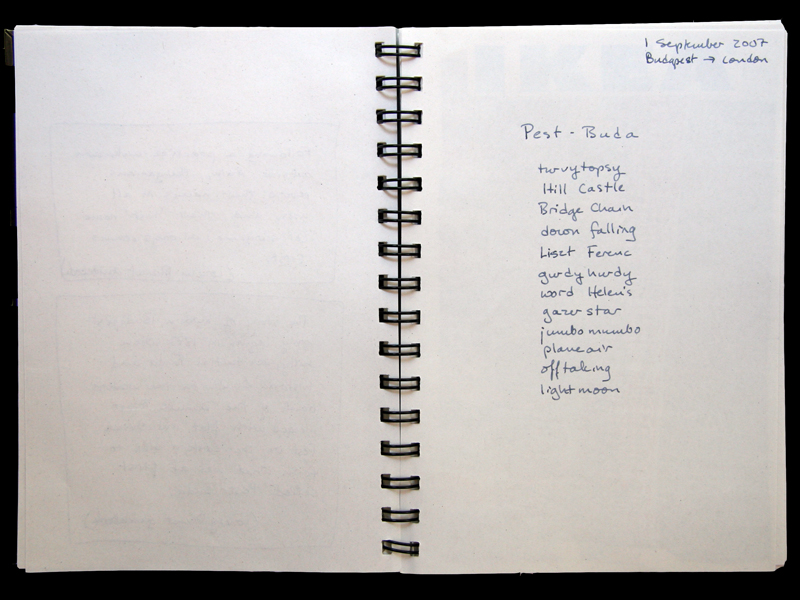 1 September 2007
Budapest → London
Pest - Buda
turvytopsy
Hill Castle
Bridge Chain
down falling
Liszt Ferenc
gurdy hurdy
word Helen's
gazer star
jumbo mumbo
plane air
off taking
light moon